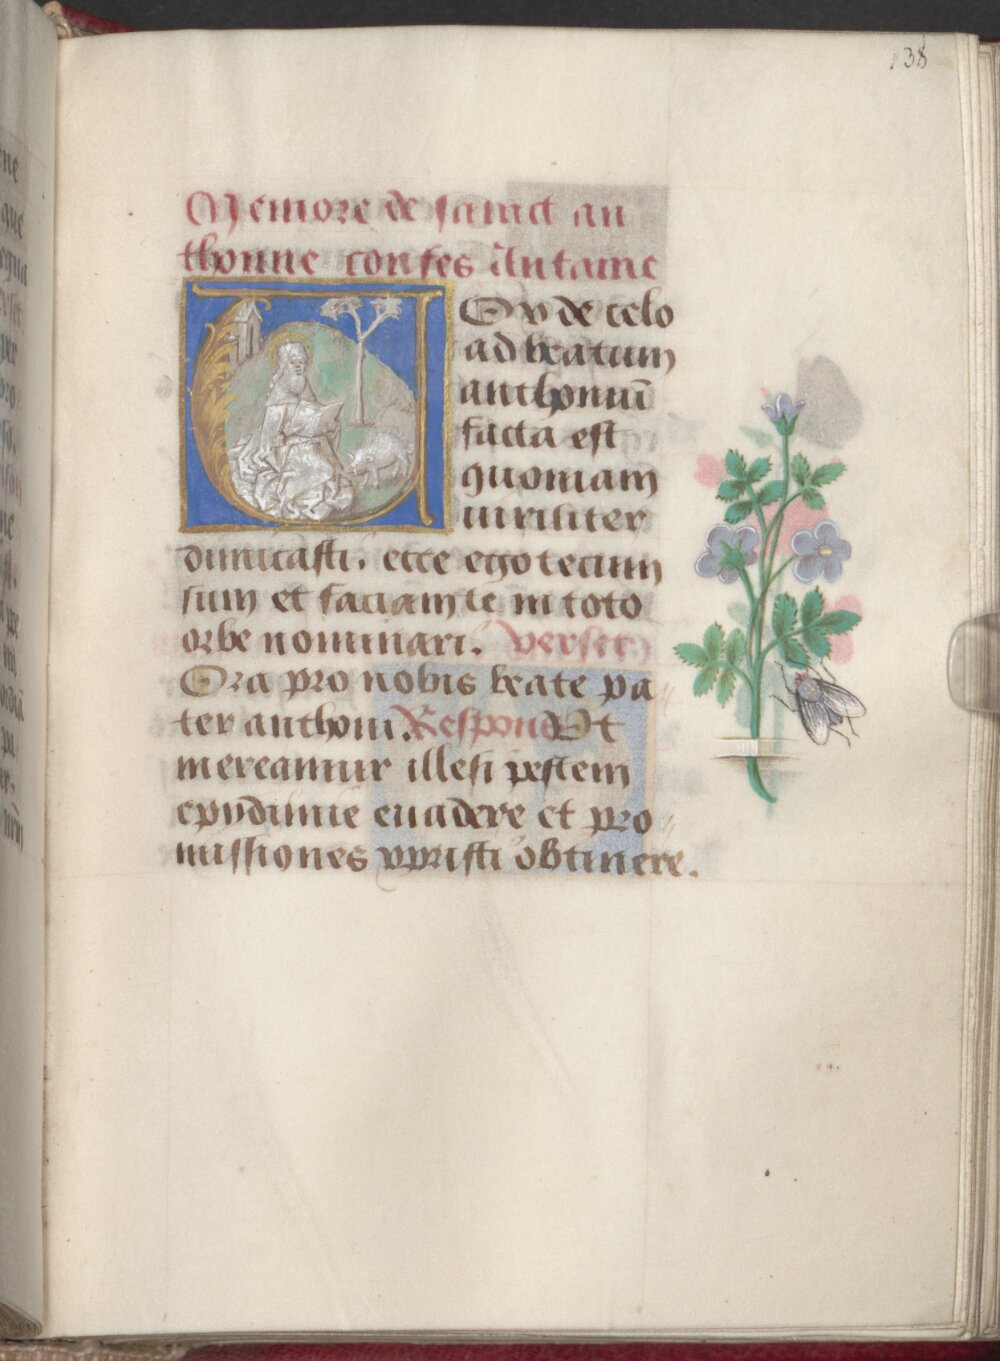 138
Memore de sainct an
thonne confes Antaine
Ox de celo
ad beatum
anthoniū
facta est
quoniam
uiriliter
dimicasti. ecce ego tecum
sum et faciam te in toto
orbe nominari. Verset.
Ora pro nobis beate pa
ter anthoni. Respond Vt
mereamur illesi pestem
epydimie euadere et pro
missiones xpristi obtinere.